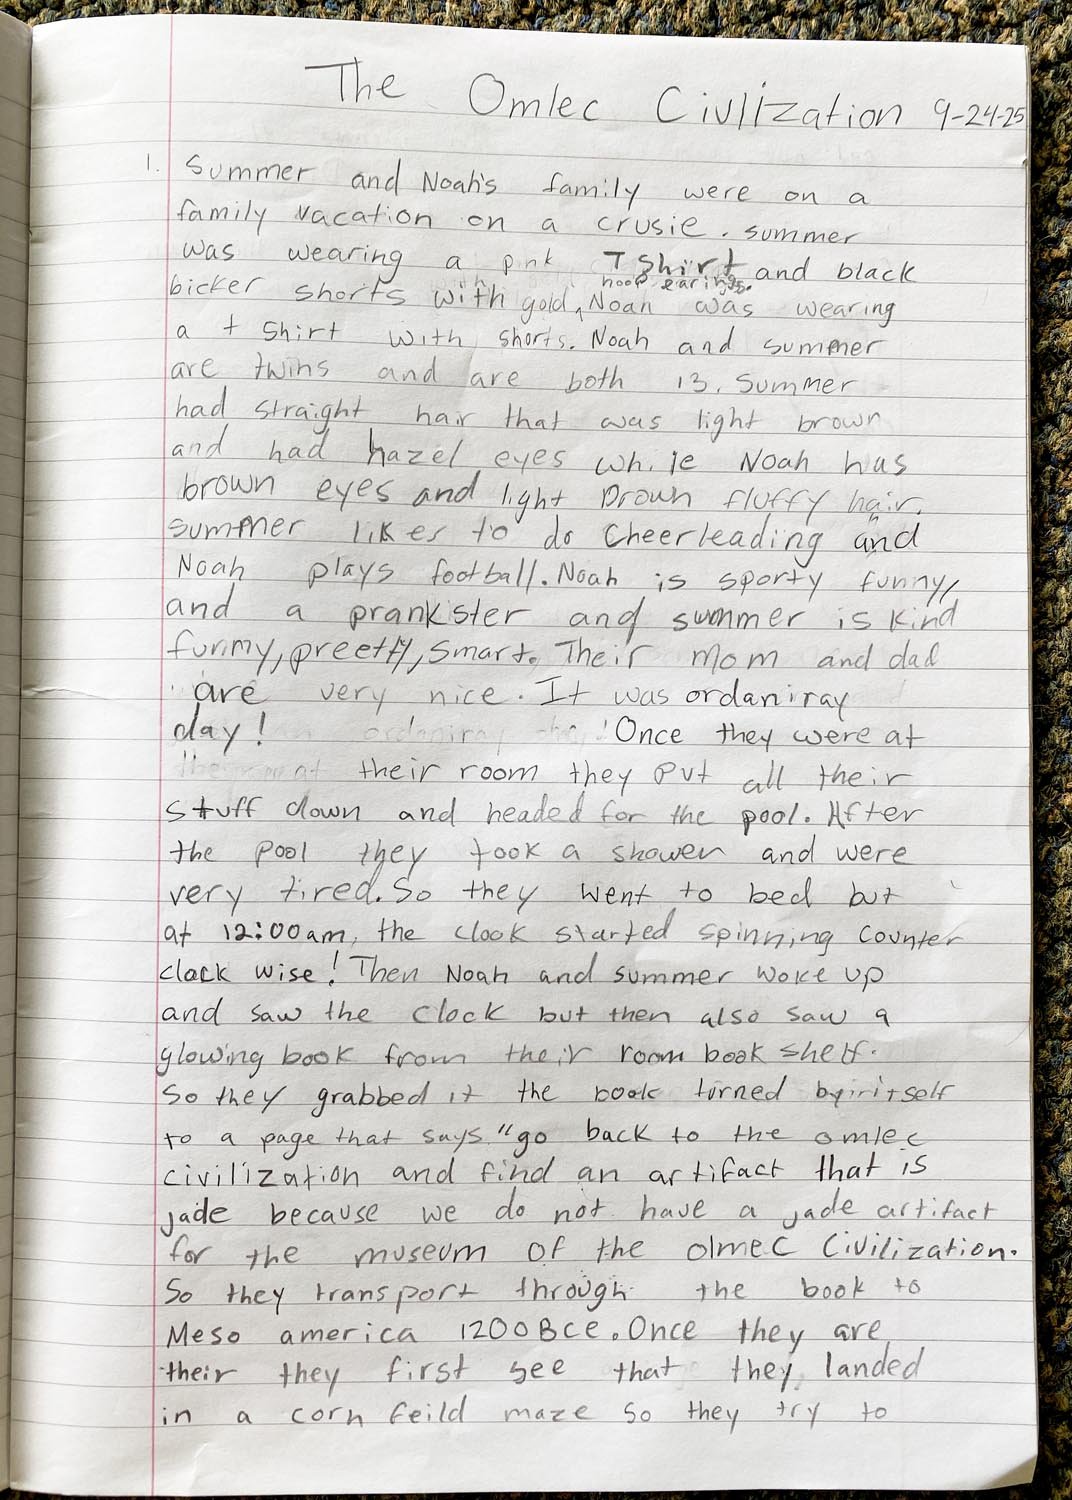 The Omlec Civlization 9-24-25
1. Summer and Noah's family were on a
family vacation on a crusie. summer
was wearing a pnk T shirt and black
hoop earings.
bicker shorts with gold, Noah was wearing
a t shirt with shorts. Noah and summer
are twins and are both 13. Summer
had straight hair that was light brown
and had hazel eyes while Noah has
brown eyes and light brown fluffy hair.
summer likes to do Cheerleading and
Noah plays football. Noah is sporty funny,
and a prankister and summer is kind
funmy, preetty, smart. Their mom and dad
are very nice. It was ordaniray
day! Once they were at
their room they put all their
stuff down and headed for the pool. After
the pool they took a shower and were
very tired. So they went to bed but
at 12:00am, the clook started spinning counter
clock wise! Then Noah and summer woke up
and saw the clock but then also saw a
glowing book from their room book shelf.
So they grabbed it the book turned itself
to a page that says "go back to the omlec
civilization and find an artifact that is
jade because we do not have a jade artifact
for the museum of the olmec Civilization.
So they transport through the book to
Meso america 1200Bce. Once they are
their they first see that they landed
in a corn feild maze so they try to